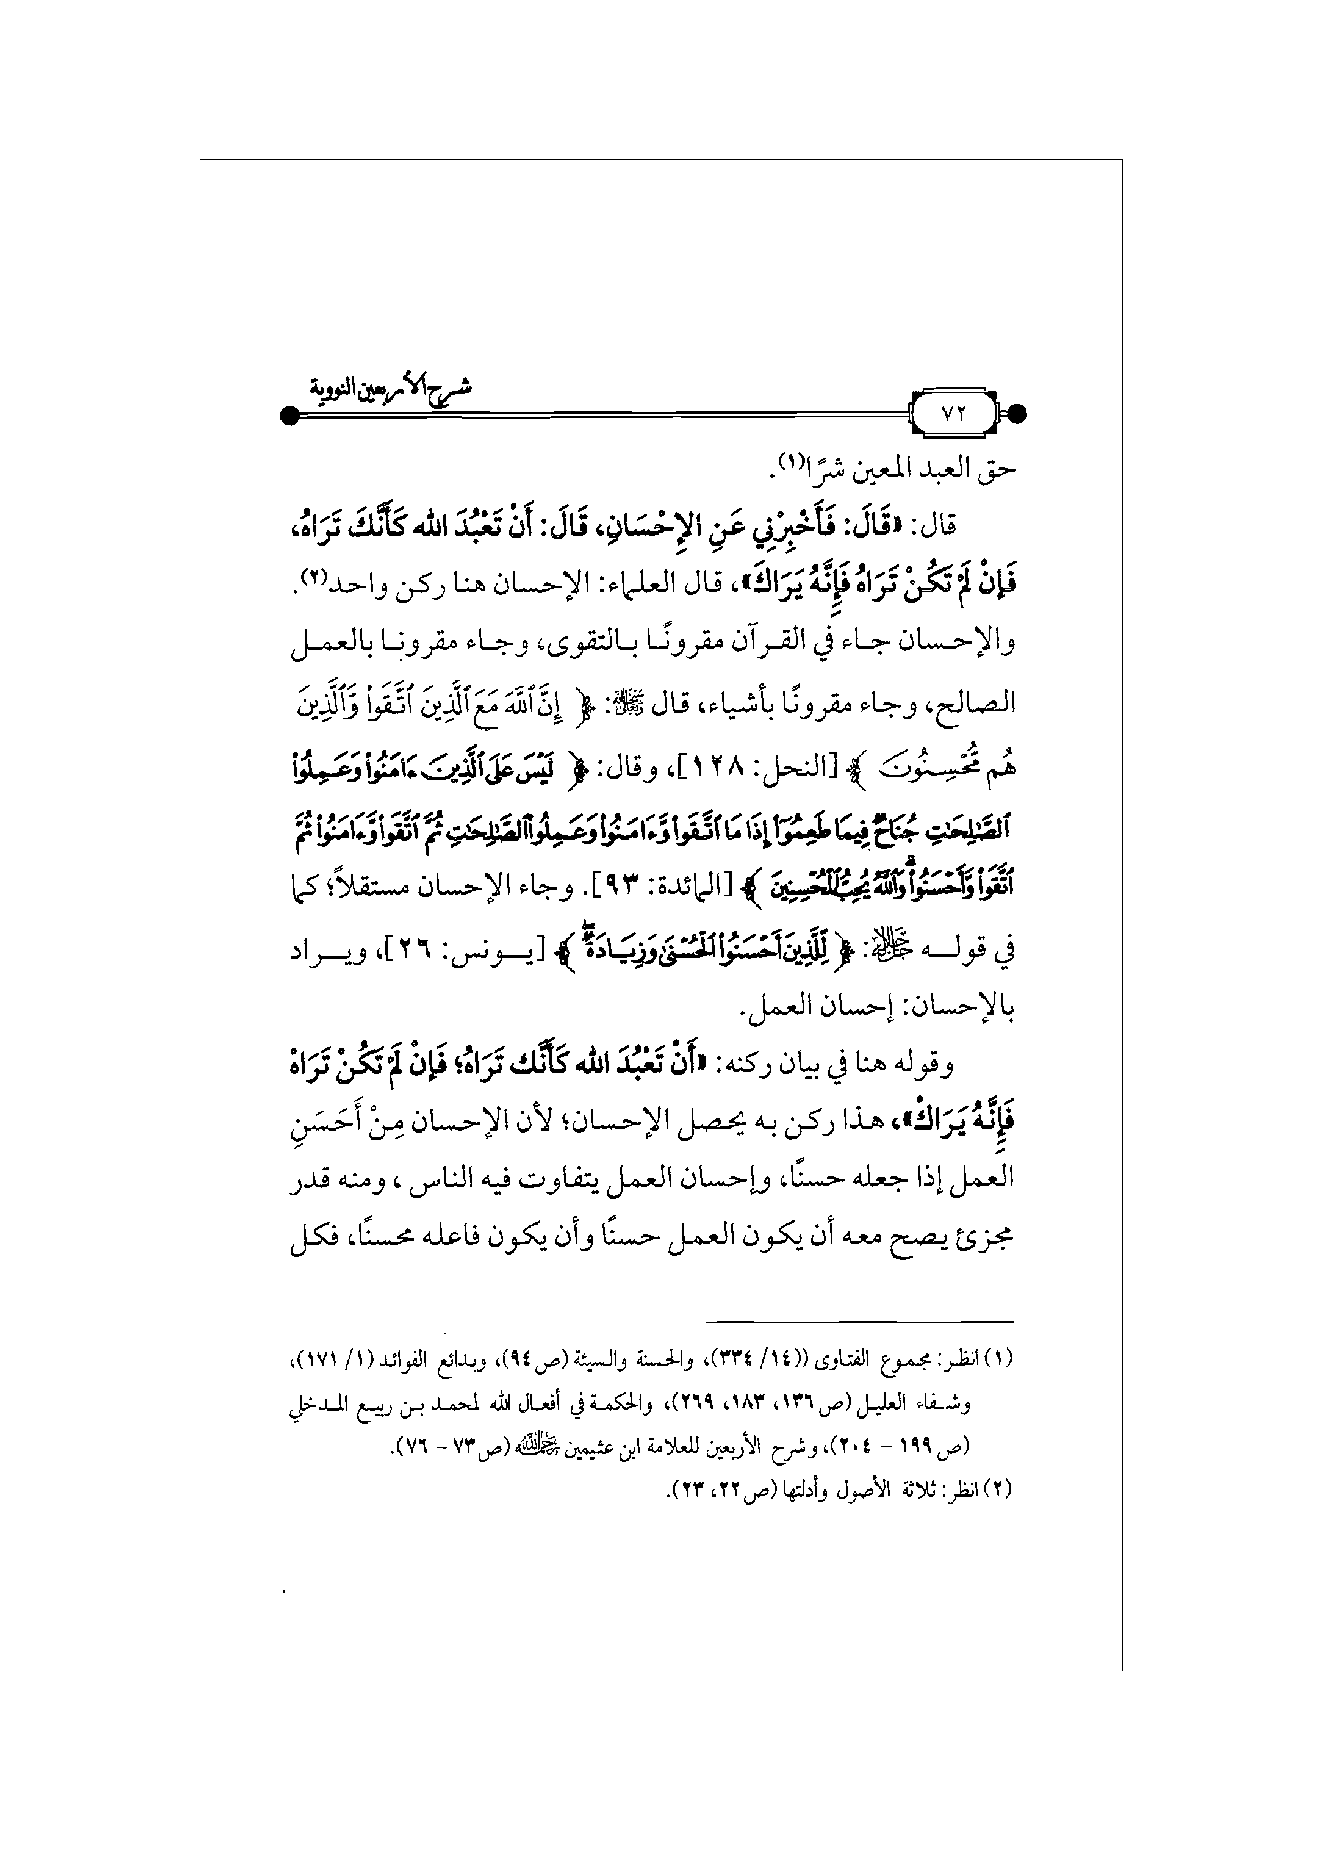 شرح الأربعين النووية
٧٢
حق العبد المعين شرًا(١).
قال: «قَالَ: فَأَخْبِرْنِي عَنِ الإِحْسَانِ، قَالَ: أَنْ تَعْبُدَ الله كَأَنَّكَ تَرَاهُ،
فَإِنْ لَمْ تَكُنْ تَرَاهُ فَإِنَّهُ يَرَاكَ»، قال العلماء: الإحسان هنا ركن واحد(٢).
والإحسان جاء في القرآن مقرونًا بالتقوى، وجاء مقرونا بالعمل
الصالح، وجاء مقرونًا بأشياء، قال ﷻ: ﴿ إِنَّ ٱللَّهَ مَعَ ٱلَّذِينَ ٱتَّقَوا۟ وَّٱلَّذِينَ
هُم مُّحْسِنُونَ ﴾ [النحل: ١٢٨]، وقال: ﴿ لَيْسَ عَلَى ٱلَّذِينَ ءَامَنُوا۟ وَعَمِلُوا۟
ٱلصَّٰلِحَٰتِ جُنَاحٌ فِيمَا طَعِمُوٓا۟ إِذَا مَا ٱتَّقَوا۟ وَّءَامَنُوا۟ وَعَمِلُوا۟ ٱلصَّٰلِحَٰتِ ثُمَّ ٱتَّقَوا۟ وَّءَامَنُوا۟ ثُمَّ
ٱتَّقَوا۟ وَّأَحْسَنُوا۟ ۗ وَٱللَّهُ يُحِبُّ ٱلْمُحْسِنِينَ ﴾ [المائدة: ٩٣]. وجاء الإحسان مستقلاً؛ كما
في قوله ﷻ: ﴿ لِّلَّذِينَ أَحْسَنُوا۟ ٱلْحُسْنَىٰ وَزِيَادَةٌ ۖ ﴾ [يونس: ٢٦]، ويراد
بالإحسان: إحسان العمل.
وقوله هنا في بيان ركنه: «أَنْ تَعْبُدَ الله كَأَنَّك تَرَاهُ؛ فَإِنْ لَمْ تَكُنْ تَرَاهُ
فَإِنَّهُ يَرَاكْ»، هذا ركن به يحصل الإحسان؛ لأن الإحسان مِنْ أَحَسَنِ
العمل إذا جعله حسنًا، وإحسان العمل يتفاوت فيه الناس ، ومنه قدر
مجزئ يصح معه أن يكون العمل حسنًا وأن يكون فاعله محسنًا، فكل
(١) انظر: مجموع الفتاوى ((١٤/ ٣٣٤)، والحسنة والسيئة (ص٩٤)، وبدائع الفوائد (١/ ١٧١)،
وشفاء العليل (ص١٣٦، ١٨٣، ٢٦٩)، والحكمة في أفعال الله لمحمد بن ربيع المدخلي
(ص١٩٩ - ٢٠٤)، وشرح الأربعين للعلامة ابن عثيمين رحمه الله (ص٧٣ - ٧٦).
(٢) انظر: ثلاثة الأصول وأدلتها (ص٢٢، ٢٣).